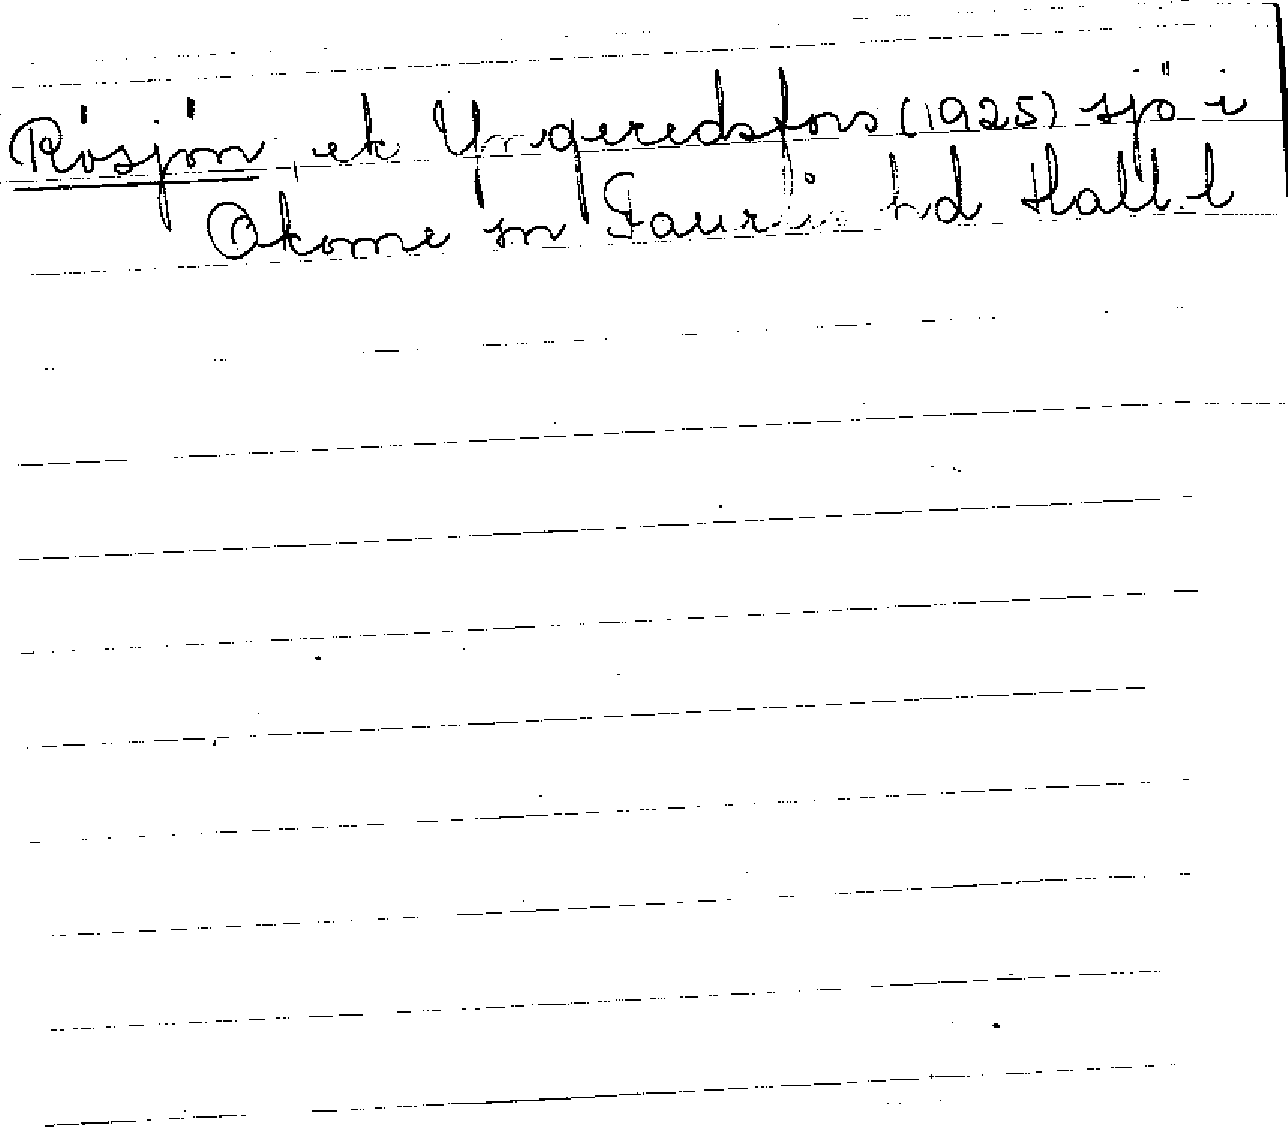 Rösjön, ek Yngeredsfors (1925) sjö i
Okome sn Faurås hd Hall. l